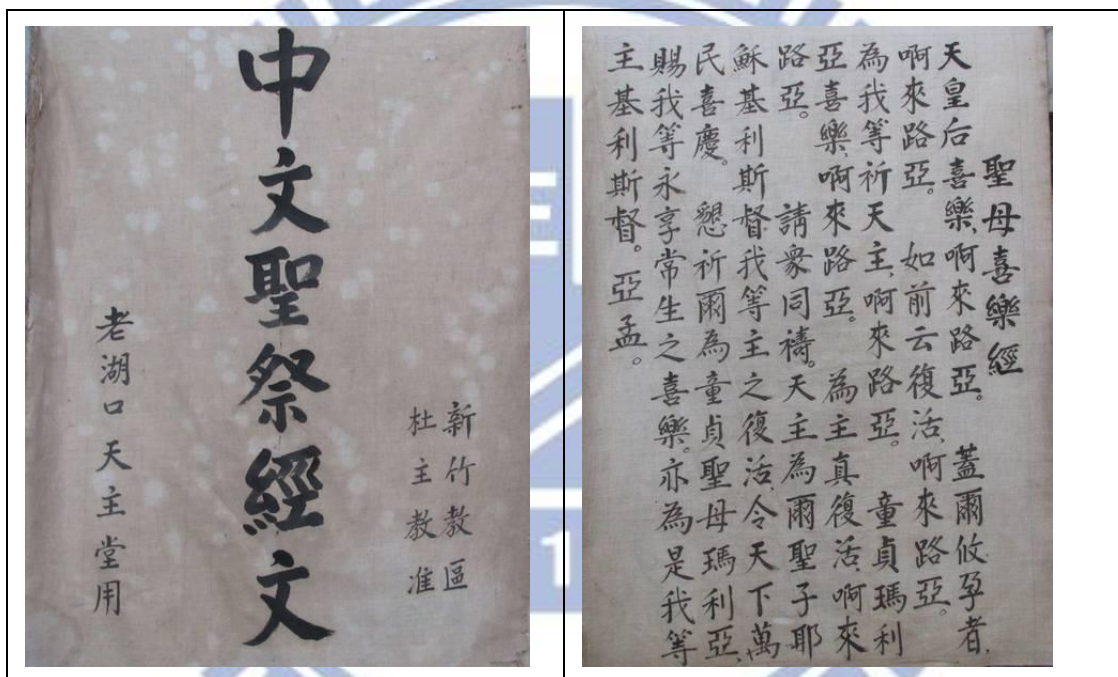 新竹教區
杜主教准
中文聖祭經文
老湖口天主堂用
聖母喜樂經
天皇后喜樂、啊來路亞。 蓋爾攸孕者、
啊來路亞。 如前云復活、啊來路亞。
為我等祈天主、啊來路亞。 童貞瑪利
亞喜樂、啊來路亞。 為主真復活、啊來
路亞。 請衆同禱。天主為爾聖子耶
穌基利斯督我等主之復活、令天下萬
民喜慶。 懇祈爾為童貞聖母瑪利亞、
賜我等永享常生之喜樂。亦為是我等
主基利斯督。亞孟。